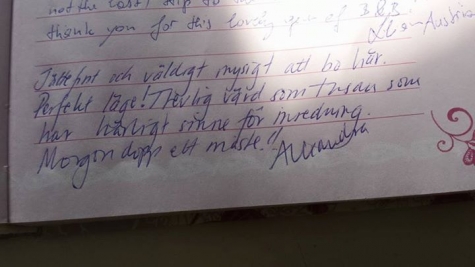 not the last trip to
thank you for this lovely of B&B!
Austria
Jättefint och väldigt mysigt att bo här.
Perfekt läge! Trevlig värd som Susan som
har härligt sinne för inredning.
Morgondopp ett måste!!
Alexandra